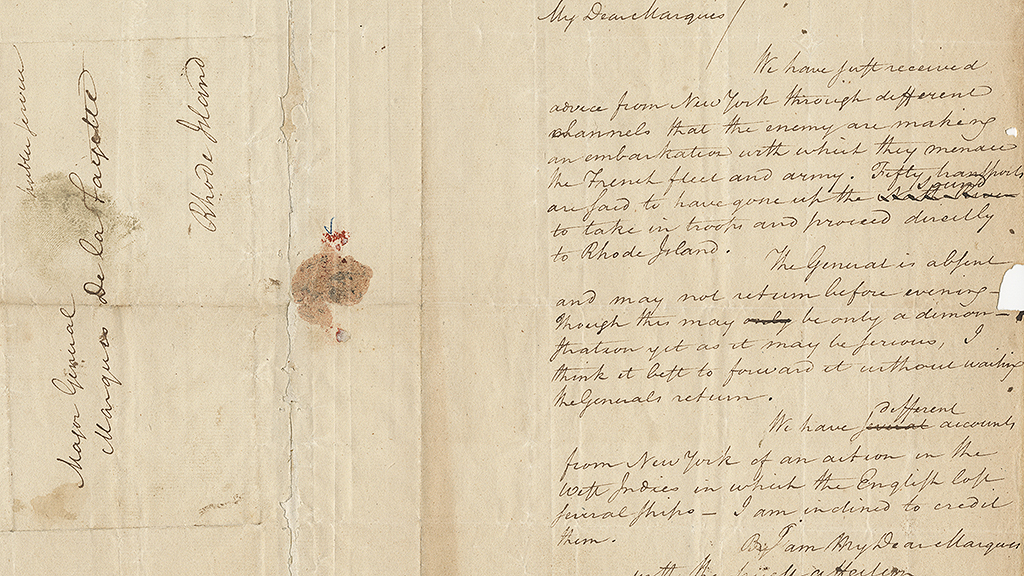 public service
Major General
Marquis De la Fayette
Rhode Island
My Dear Marquis
We have just received
advice from New York through different
channels that the enemy are making
an embarkation with which they menace
the French fleet and army. Fifty transports
are said to have gone up the Sound
to take in troops and proceed directly
to Rhode Island.
The General is absent
and may not return before evening
Though this may only be only a demon-
stration yet as it may be serious, I
think it best to forward it without waiting
the Generals return.
We have several different accounts
from New York of an action in the
West Indies in which the English lost
several ships – I am inclined to credit
them.
I am My Dear Marquis
with the